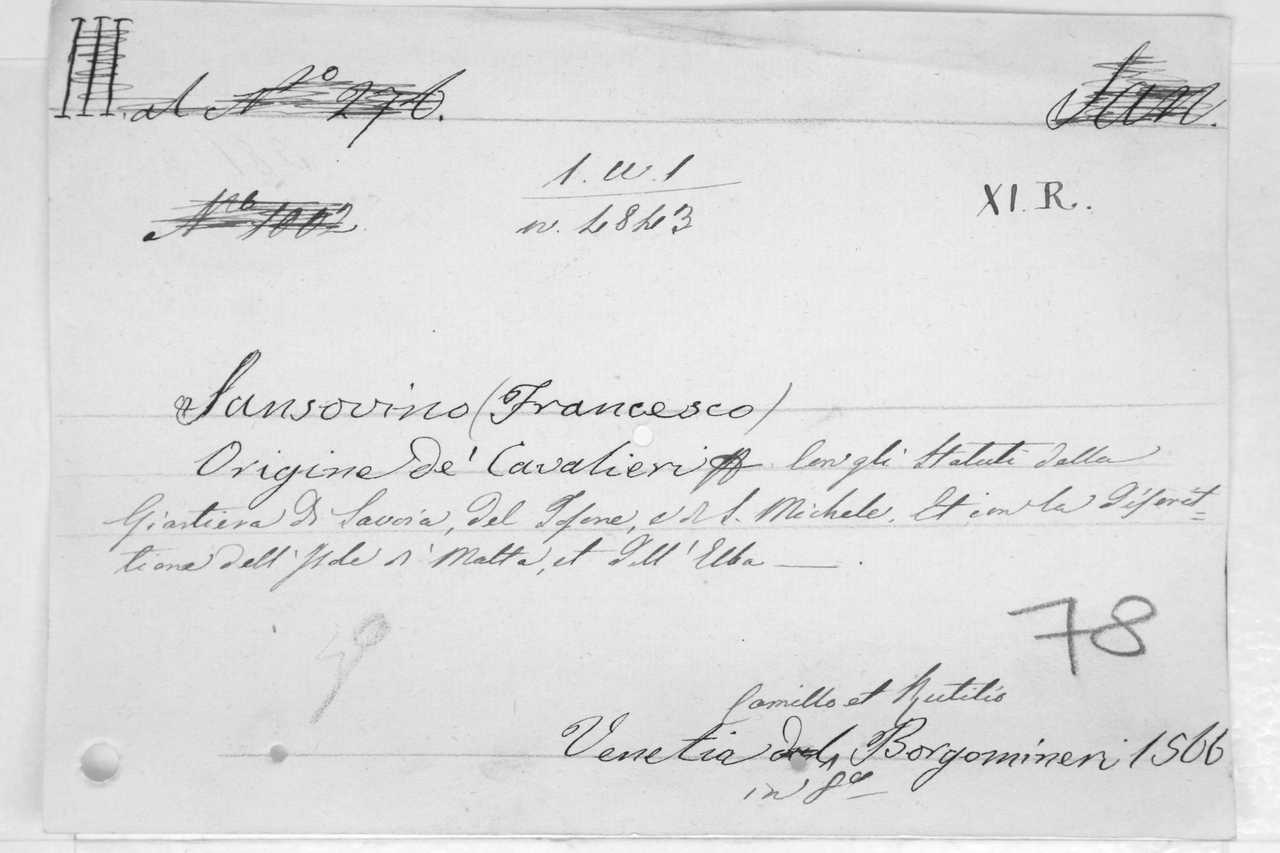 III. al N.º 276. San.
Nº 1002 1. w. 1 XI. R.
n. 4843
Sansovino (Francesco)
Origine de' Cavalieri Con gli Statuti della
Giartiera di Savoia, del Tosone, e di S. Michele. Et con la Discrit=
tione dell' Isole di Malta, et dell' Elba — .
78
Camillo et Rutilio
Venetia Borgomineri 1566
in 8º